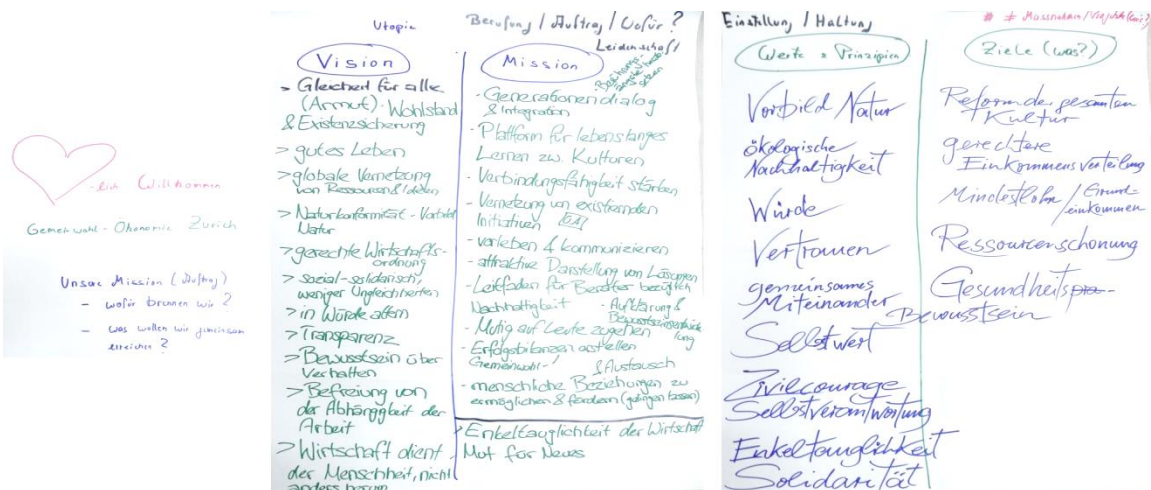 -lich Willkommen
Gemeinwohl-Ökonomie Zürich
Unsere Mission (Auftrag)
- wofür brennen wir?
- was wollen wir gemeinsam
erreichen?
Utopie
Vision
> Gleichheit für alle
(Armut). Wohlstand
& Existenzsicherung
> gutes Leben
> globale Vernetzung
von Ressourcen & Ideen
> Naturkonformität - Vorbild
Natur
> gerechte Wirtschafts-
ordnung
> sozial-solidarisch,
weniger Ungleichheiten
> in Würde altern
> Transparenz
> Bewusstsein über
Verhalten
> Befreiung von
der Abhängigkeit der
Arbeit
> Wirtschaft dient
der Menschheit, nicht
anders herum
Berufung / Auftrag / Wofür?
Leidenschaft
Mission
- Generationendialog
& Integration
- Plattform für lebenslanges
Lernen zw. Kulturen
- Verbindungsfähigkeit stärken
- Vernetzung von existierenden
Initiativen
- vorleben & kommunizieren
- attraktive Darstellung von Lösungen
- Leitfaden für Berater bezüglich
Nachhaltigkeit
- Aufklärung &
Bewusstseinsentwick
lung
- Mutig auf Leute zugehen
- Erfolgsbilanzen erstellen
Gemeinwohl-
& Austausch
- menschliche Beziehungen zu
ermöglichen & fördern (gelingen lassen)
> Enkeltauglichkeit der Wirtschaft
Mut für Neues
Einstellung / Haltung
Werte = Prinzipien
Vorbild Natur
ökologische
Nachhaltigkeit
Würde
Vertrauen
gemeinsames
Miteinander
Selbstwert
Zivilcourage
Selbstverantwortung
Enkeltauglichkeit
Solidarität
≠ Massnahmen
Ziele (was?)
Reform der gesamten
Kultur
gerechtere
Einkommensverteilung
Mindestlohn / Grund-
einkommen
Ressourcenschonung
Gesundheits
Bewusstsein